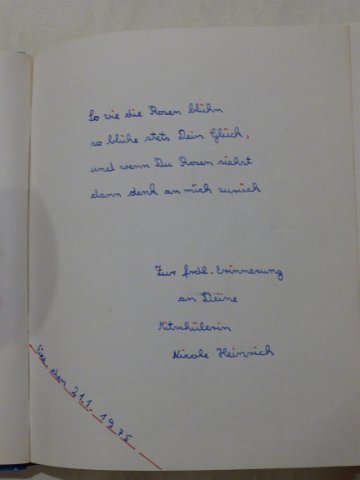 So wie die Rosen blühn
so blühe stets Dein Glück,
und wenn Du Rosen siehst
dann denk an mich zurück
Zur frdl. Erinnerung
an Deine
Mitschülerin
Nicole Heinrich
den 21.1.1975